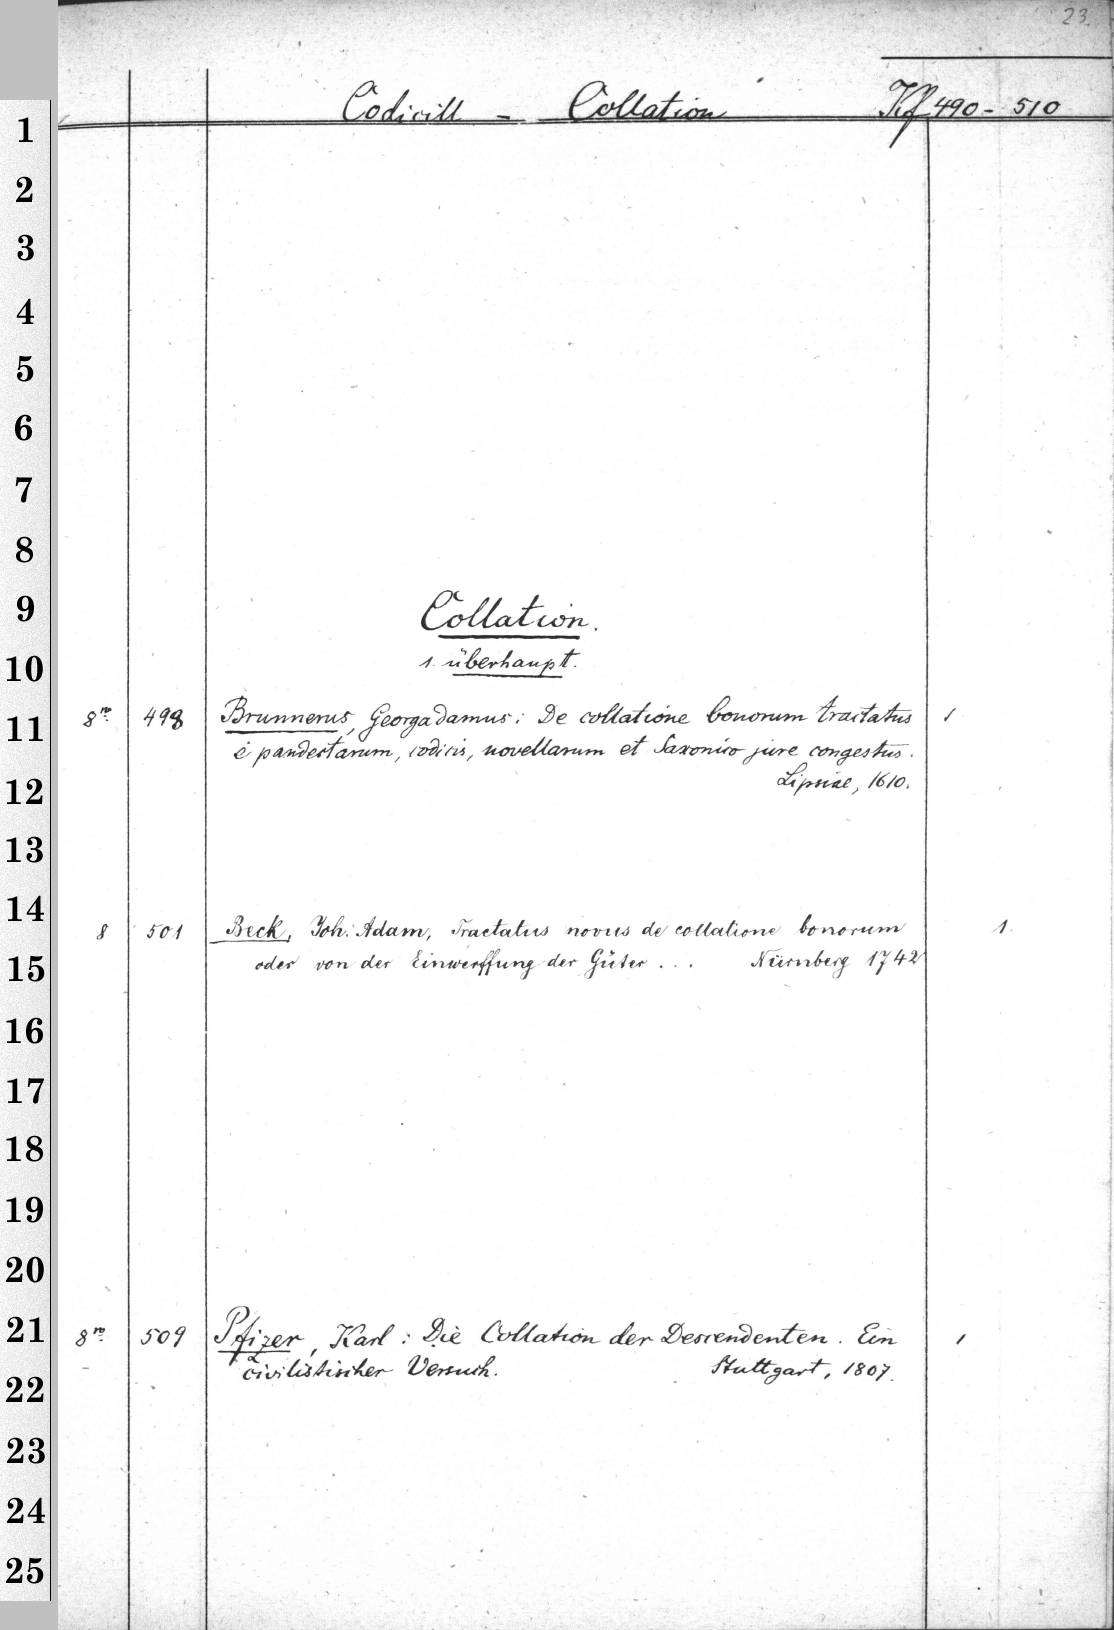 23.
Codicill - Collation Kf 490 - 510
1
2
3
4
5
6
7
8
9
Collation.
10
1. überhaupt.
11
8ro 498 Brunnerus, Georgadamus: De collatione bonorum tractatus 1
è pandectarum, codicis, novellarum et Saxonico jure congestus.
12
Lipsiae, 1610.
13
14
8 501 Beck, Joh. Adam, Tractatus novus de collatione bonorum 1.
15
oder von der Einwerffung der Güter ... Nürnberg 1742
16
17
18
19
20
21
8ro 509 Pfizer, Karl: Die Collation der Descendenten. Ein 1
22
civilistischer Versuch. Stuttgart, 1807.
23
24
25